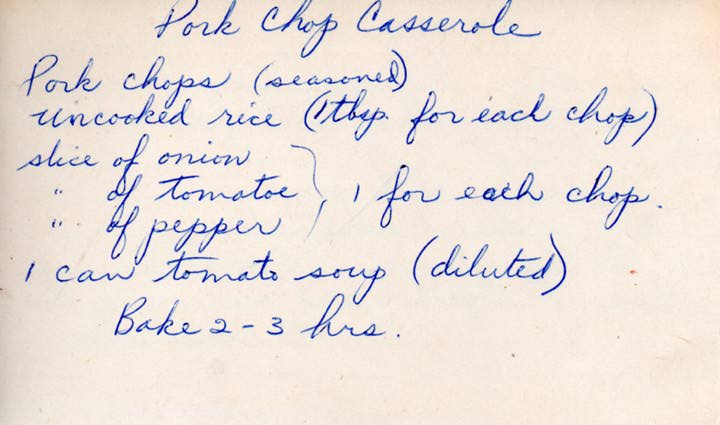 Pork Chop Casserole
Pork chops (seasoned)
uncooked rice (1 tbsp. for each chop)
slice of onion
" of tomatoe , 1 for each chop.
" of pepper
1 can tomato soup (diluted)
Bake 2-3 hrs.